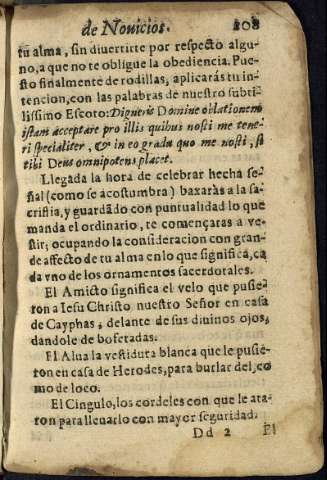 de Nouicios. 208
tu alma, sin diuertirte por respecto algu-
no, a que no te obligue la obediencia. Pue-
sto finalmente de rodillas, aplicarás tu in-
tencion, con las palabras de nuestro subti-
lissimo Escoto: Digneris Domine oblationem
istam acceptare pro illis quibus nosti me tene-
ri specialiter, & in eo gradu quo me nosti, si
tibi Deus omnipotens placet.
Llegada la hora de celebrar hecha se-
ñal (como se acostumbra) baxarás a la sa-
cristia, y guardãdo con puntualidad lo que
manda el ordinario, te començaras a ve-
stir; ocupando la consideracion con gran-
de affecto de tu alma en lo que significa, ca
da vno de los ornamentos sacerdotales.
El Amicto significa el velo que pusie-
ron a Iesu Christo nuestro Señor en casa
de Cayphas, delante de sus diuinos ojos,
dandole de bofetadas.
El Alua la vestidura blanca que le pusie-
ron en casa de Herodes, para burlar del, co
mo de loco.
El Cingulo, los cordeles con que le ata-
ron para lleuarlo con mayor seguridad.
Dd 2 El